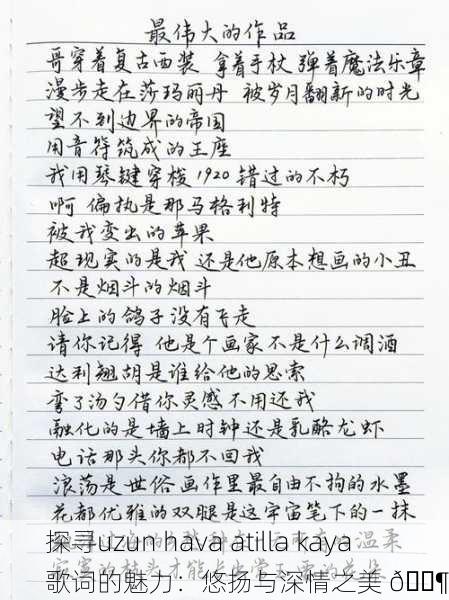 最伟大的作品
哥穿着复古西装 拿着手杖 弹着魔法乐章
漫步走在莎玛丽丹 被岁月翻新的时光
望不到边界的帝国
用音符筑成的王座
我用琴键穿梭1920错过的不朽
啊 偏执是那马格利特
被我变出的苹果
超现实的是我 还是他原本想画的小丑
不是烟斗的烟斗
脸上的鸽子没有飞走
请你记得 他是个画家不是什么调酒
达利翘胡是谁给他的思索
弯了汤勺借你灵感不用还我
融化的是墙上时钟还是乳酪龙虾
电话那头你都不回我
浪荡是世俗画作里最自由不拘的水墨
花都优雅的双腿是这宇宙笔下的一抹
探寻uzun hava atilla kaya
歌词的魅力：悠扬与深情之美 ð¶